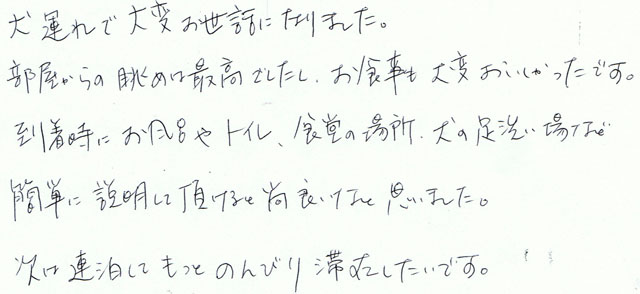 犬連れで大変お世話になりました。
部屋からの眺めは最高でしたし、お食事も大変おいしかったです。
到着時にお風呂やトイレ、食堂の場所、犬の足洗い場など
簡単に説明して頂けると尚良いなと思いました。
次は連泊してもっとのんびり滞在したいです。